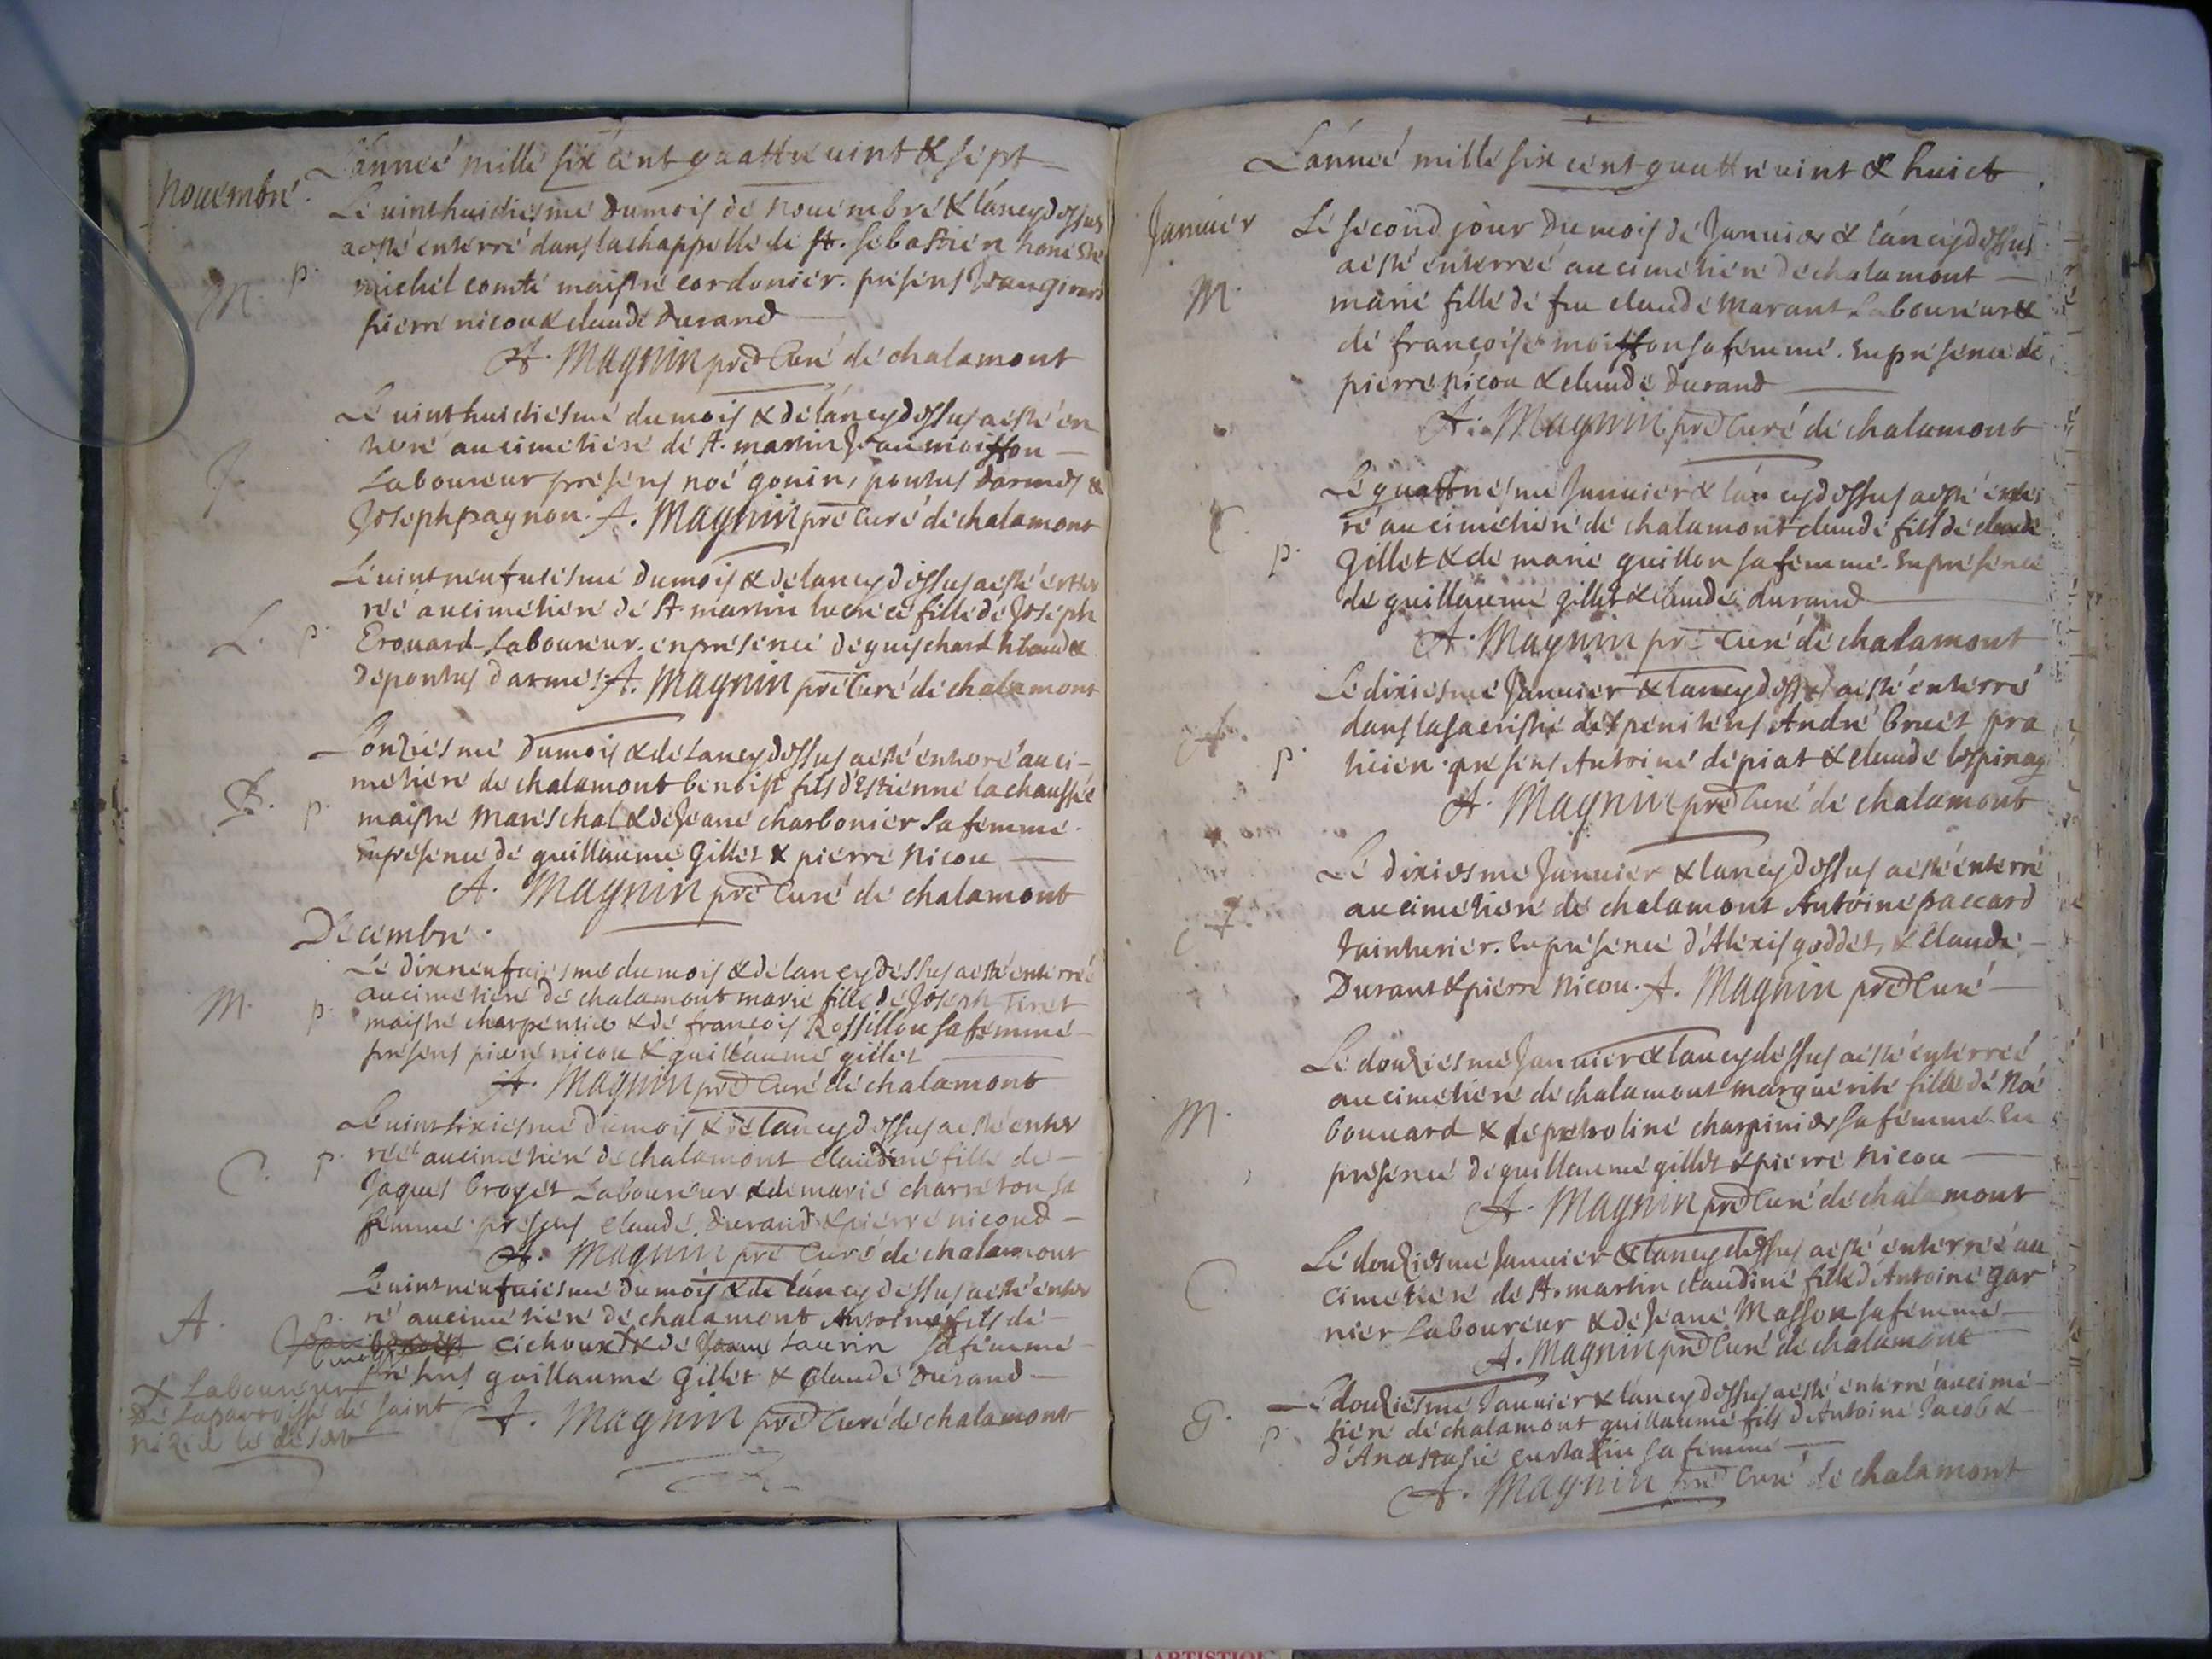 L'anneé mille six cent quattre uint & sept
Nouembre.
Le uint huictiesme du mois de nouembre & l'an cy dessus
a esté enterré dans la chappelle de st. sebastien honeste
M. p. michel comte maistre cordonier. presens Jean girard
pierre nicou & claude Durand
A. Magnin pre Curé de chalamont
Le uint huictiesme du mois & de l'an cy dessus a esté en
terré au cimetiere de st. martin Jean moisson
J. Laboureur presens noé gonin, pontus darmes &
Joseph pagnon. A. Magnin pre Curé de chalamont
Le uint neufuiesme du mois & de l'an cy dessus a esté enter
reé au cimetiere de st martin lucrece fille de Joseph
L. p. Erouard Laboureur. en presence de guischard &
de pontus darmes. A. Magnin pre Curé de chalamont
L'onziesme du mois & de l'an cy dessus a esté enterré au ci-
metiere de chalamont benoist fils d'Estienne la chausseé
B. p. maistre Mareschal & de Jeane charbonier sa femme.
en presence de guillaume Gillet & pierre Nicou
A. Magnin pre Curé de chalamont
Decembre.
Le dixneufuiesme du mois & de l'an cy dessus a esté enterreé
au cimetiere de chalamont marie fille de Joseph Tiret
M. p. maistre charpentier & de françois Rossillon sa femme
presens pierre nicou & guillaume gillet
A. Magnin pre Curé de chalamont
Le uint sixiesme du mois & de l'an cy dessus a esté enter
reé au cimetiere de chalamont claudine fille de
C. p. Jaques broyet Laboureur & de marie charreton sa
femme. presens claude durand & pierre nicoud
A. Magnin pre Curé de chalamont
Le uint neufuiesme du mois & de l'an cy dessus a esté enter
A. ré au cimetiere de chalamont Antoine fils de
benoist cichoux & de Jeane taurin sa femme
presens guillaume Gillet & Claude Durand
& Laboureur
de La parroisse de saint
nizie le desert
A. Magnin pre Curé de chalamont
L'anneé mille six cent quattre uint & huict
Januier Le second jour du mois de Januier & l'an cy dessus
a esté enterreé au cimetiere de chalamont
M. marie fille de feu claude Marant Laboureur &
de françoise moisson sa femme. en presence de
pierre nicou & claude Durand
A. Magnin pre Curé de chalamont
Le quattriesme Januier & l'an cy dessus a esté enter
C. ré au cimetiere de chalamont claude fils de claude
p. Gillet & de marie guillon sa femme. en presence
de guillaume gillet & claude durand
A. Magnin pre Curé de chalamont
Le dixiesme Januier & l'an cy dessus a esté enterré
A. dans la sacristie des penitens André bruet pra
p. ticien. presens Antoine depiat & claude lespinay
A. Magnin pre Curé de chalamont
Le dixiesme Januier & l'an cy dessus a esté enterré
au cimetiere de chalamont Antoine paccard
tainturier. En presence d'Alexis goddet, & Claude
Durant & pierre Nicou. A. Magnin pre Curé
Le douziesme Januier & l'an cy dessus a esté enterreé
au cimetiere de chalamont marguerite fille de Noé
M. bouuard & de petroline charpinier sa femme. En
presence de guillaume gillet & pierre Nicou
A. Magnin pre Curé de chalamont
Le douziesme Januier & l'an cy dessus a esté enterreé au
C. cimetiere de st. martin claudine fille d'Antoine gar
nier Laboureur & de Jeane Masson sa femme
A. Magnin pre Curé de chalamont
Le douziesme Januier & l'an cy dessus a esté enterré au cime
G. p. tiere de chalamont guillaume fils d'Antoine Jacob &
d'Anastasie sa femme
A. Magnin pre Curé de chalamont